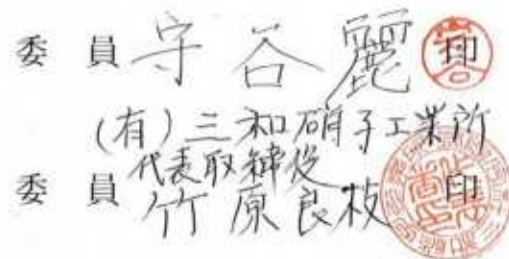 委員 守谷麗 印
(有)三和硝子工業所
代表取締役
委員 竹原良枝 印